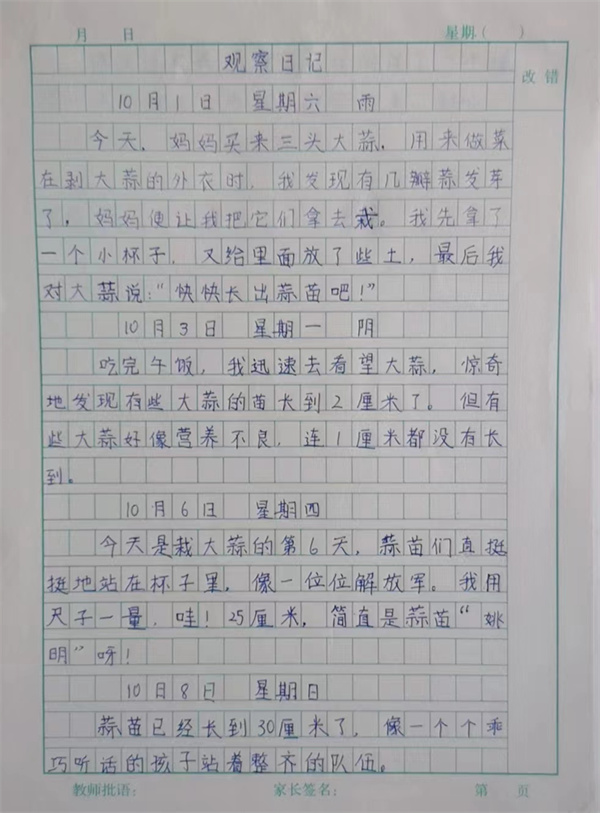 月 日 星期( )
观察日记
改错
10月1日 星期六 雨
今天，妈妈买来三头大蒜，用来做菜
在剥大蒜的外衣时，我发现有几瓣蒜发芽
了，妈妈便让我把它们拿去栽。我先拿了
一个小杯子，又给里面放了些土，最后我
对大蒜说：“快快长出蒜苗吧！”
10月3日 星期一 阴
吃完午饭，我迅速去看望大蒜，惊奇
地发现有些大蒜的苗长到2厘米了。但有
些大蒜好像营养不良，连1厘米都没有长
到。
10月6日 星期四
今天是栽大蒜的第6天，蒜苗们直挺
挺地站在杯子里，像一位位解放军。我用
尺子一量，哇！25厘米，简直是蒜苗“姚
明”呀！
10日8日 星期日
蒜苗已经长到30厘米了，像一个个乖
巧听话的孩子站着整齐的队伍。
教师批语： 家长签名： 第 页